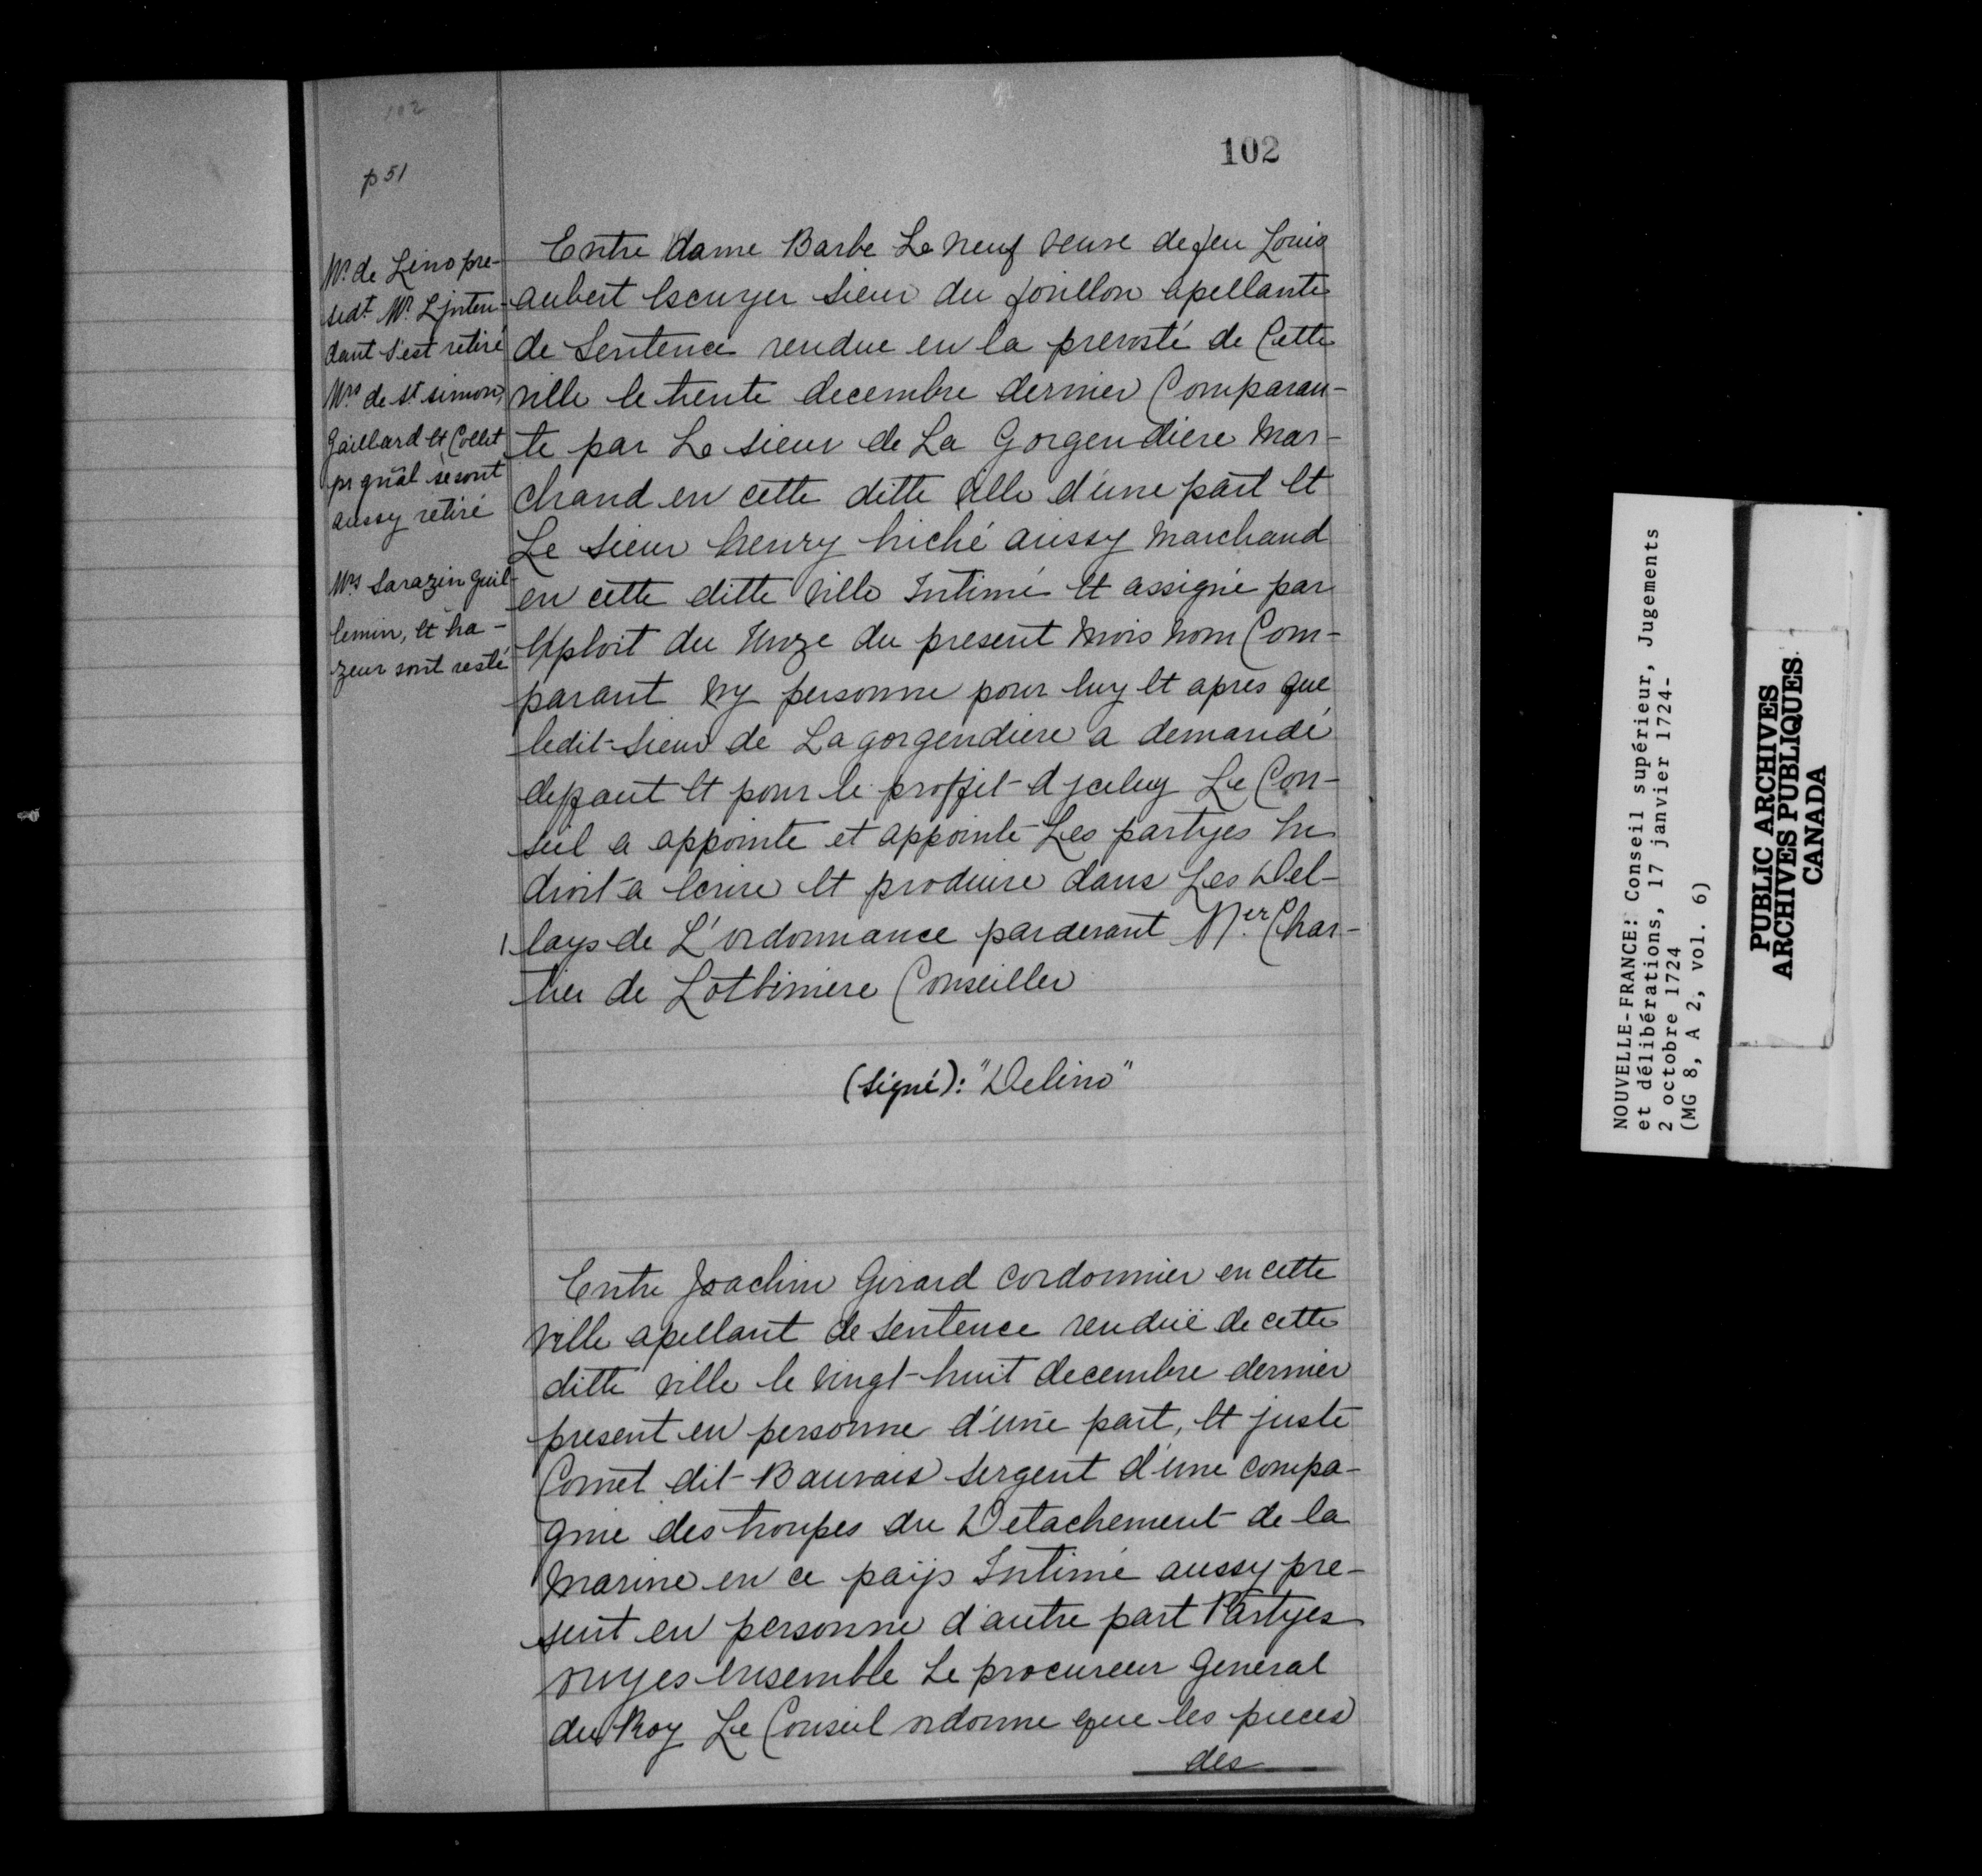 102
102
p 51
Mr. de Lino pre-
sedt. Mr. Ljnten-
dant s'est retiré
Mrs de St. simon,
Gaillard et Collet
pr gnãl se sont
aussy retiré
Mrs Sarazin Guil-
lemin, et ha-
zeur sont resté
Entre dame Barbe Le neuf veuve de feu Louis
aubert Escuyer sieur du forillon apellante
de Sentence rendue en la prevosté de Cette
ville le trente decembre dernier Comparan-
te par Le sieur de La Gorgendiere Mar-
chand en cette ditte ville d'une part Et
Le sieur henry hiché aussy Marchand
en cette ditte Ville Intimé Et assigné par
Exploit du Unze du present Mois Non Com-
parant Ny personne pour luy Et apres que
ledit Sieur de Lagorgendiere a demandé
deffaut Et pour le proffit d'jceluy Le Con-
seil a appointé et appointe Les partyes En
droit a Ecrire Et produire dans Les Del-
lays de L'ordonnance pardevant Mer. Char-
tier de Lotbiniere Conseiller
(signé): "Delino"
Entre Joachim Girard Cordonnier en cette
Ville apellant de Sentence renduë de cette
ditte Ville le Vingt-huit decembre dernier
present en personne d'une part, Et juste
Cornet dit Bauvais sergent d'une compa-
gnie des troupes du Détachement de la
Marine en ce païs Intimé aussy pre-
sent en personne d'autre part Partyes
ouyes Ensemble Le procureur General
du Roy Le Conseil ordonne que les pieces
des
NOUVELLE-FRANCE: Conseil supérieur, Jugements
et délibérations, 17 janvier 1724-
2 octobre 1724
(MG 8, A 2, vol. 6)
PUBLIC ARCHIVES
ARCHIVES PUBLIQUES
CANADA